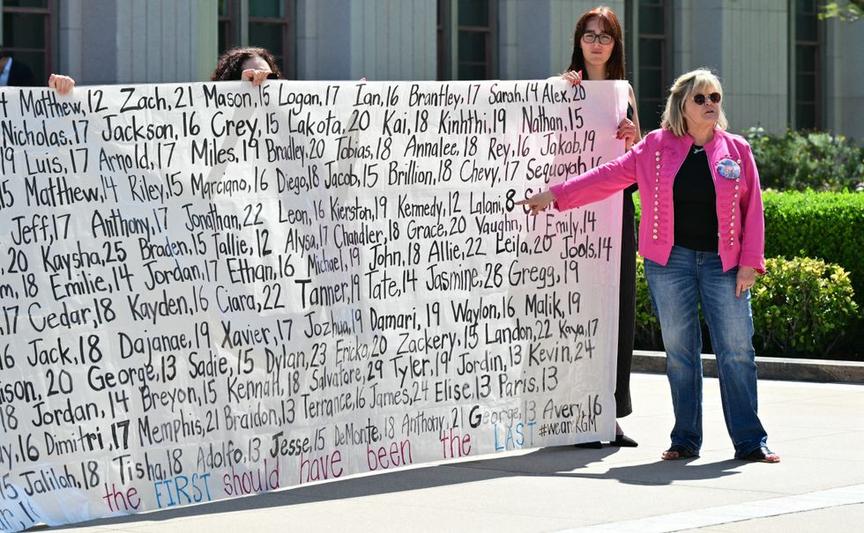 4 Matthew,12 Zach,21 Mason,15 Logan,17 Ian,16 Brantley,17 Sarah,14 Alex,20
Nicholas,17 Jackson,16 Crey,15 Lakota,20 Kai,18 Kinhthi,19 Nathan,15
19 Luis,17 Arnold,17 Miles,19 Bradley,20 Tobias,18 Annalee,18 Rey,16 Jakob,19
15 Matthew,14 Riley,15 Marciano,16 Diego,18 Jacob,15 Brillion,18 Chevy,17 Sequoyah,16
Jeff,17 Anthony,17 Jonathan,22 Leon,16 Kierston,19 Kennedy,12 Lalani,8
20 Kaysha,25 Braden,15 Tallie,12 Alysa,17 Chandler,18 Grace,20 Vaughn,17 Emily,14
18 Emilie,14 Jordan,17 Ethan,16 Michael,19 John,18 Allie,22 Leila,20 Jools,14
17 Cedar,18 Kayden,16 Ciara,22 Tanner,19 Tate,14 Jasmine,28 Gregg,19
16 Jack,18 Dajanae,19 Xavier,17 Jozhua,19 Damari,19 Waylon,16 Malik,19
20 George,13 Sadie,15 Dylan,23 Ericka,20 Zackery,15 Landon,22 Kaya,17
18 Jordan,14 Breyon,15 Kennah,18 Salvatore,29 Tyler,19 Jordin,13 Kevin,24
16 Dimitri,17 Memphis,21 Braidon,13 Terrance,16 James,24 Elise,13 Paris,13
15 Jalilah,18 Tisha,18 Adolfo,13 Jesse,15 DeMonte,18 Anthony,21 George,13 Avery,16
the FIRST should have been the LAST #wearKGM